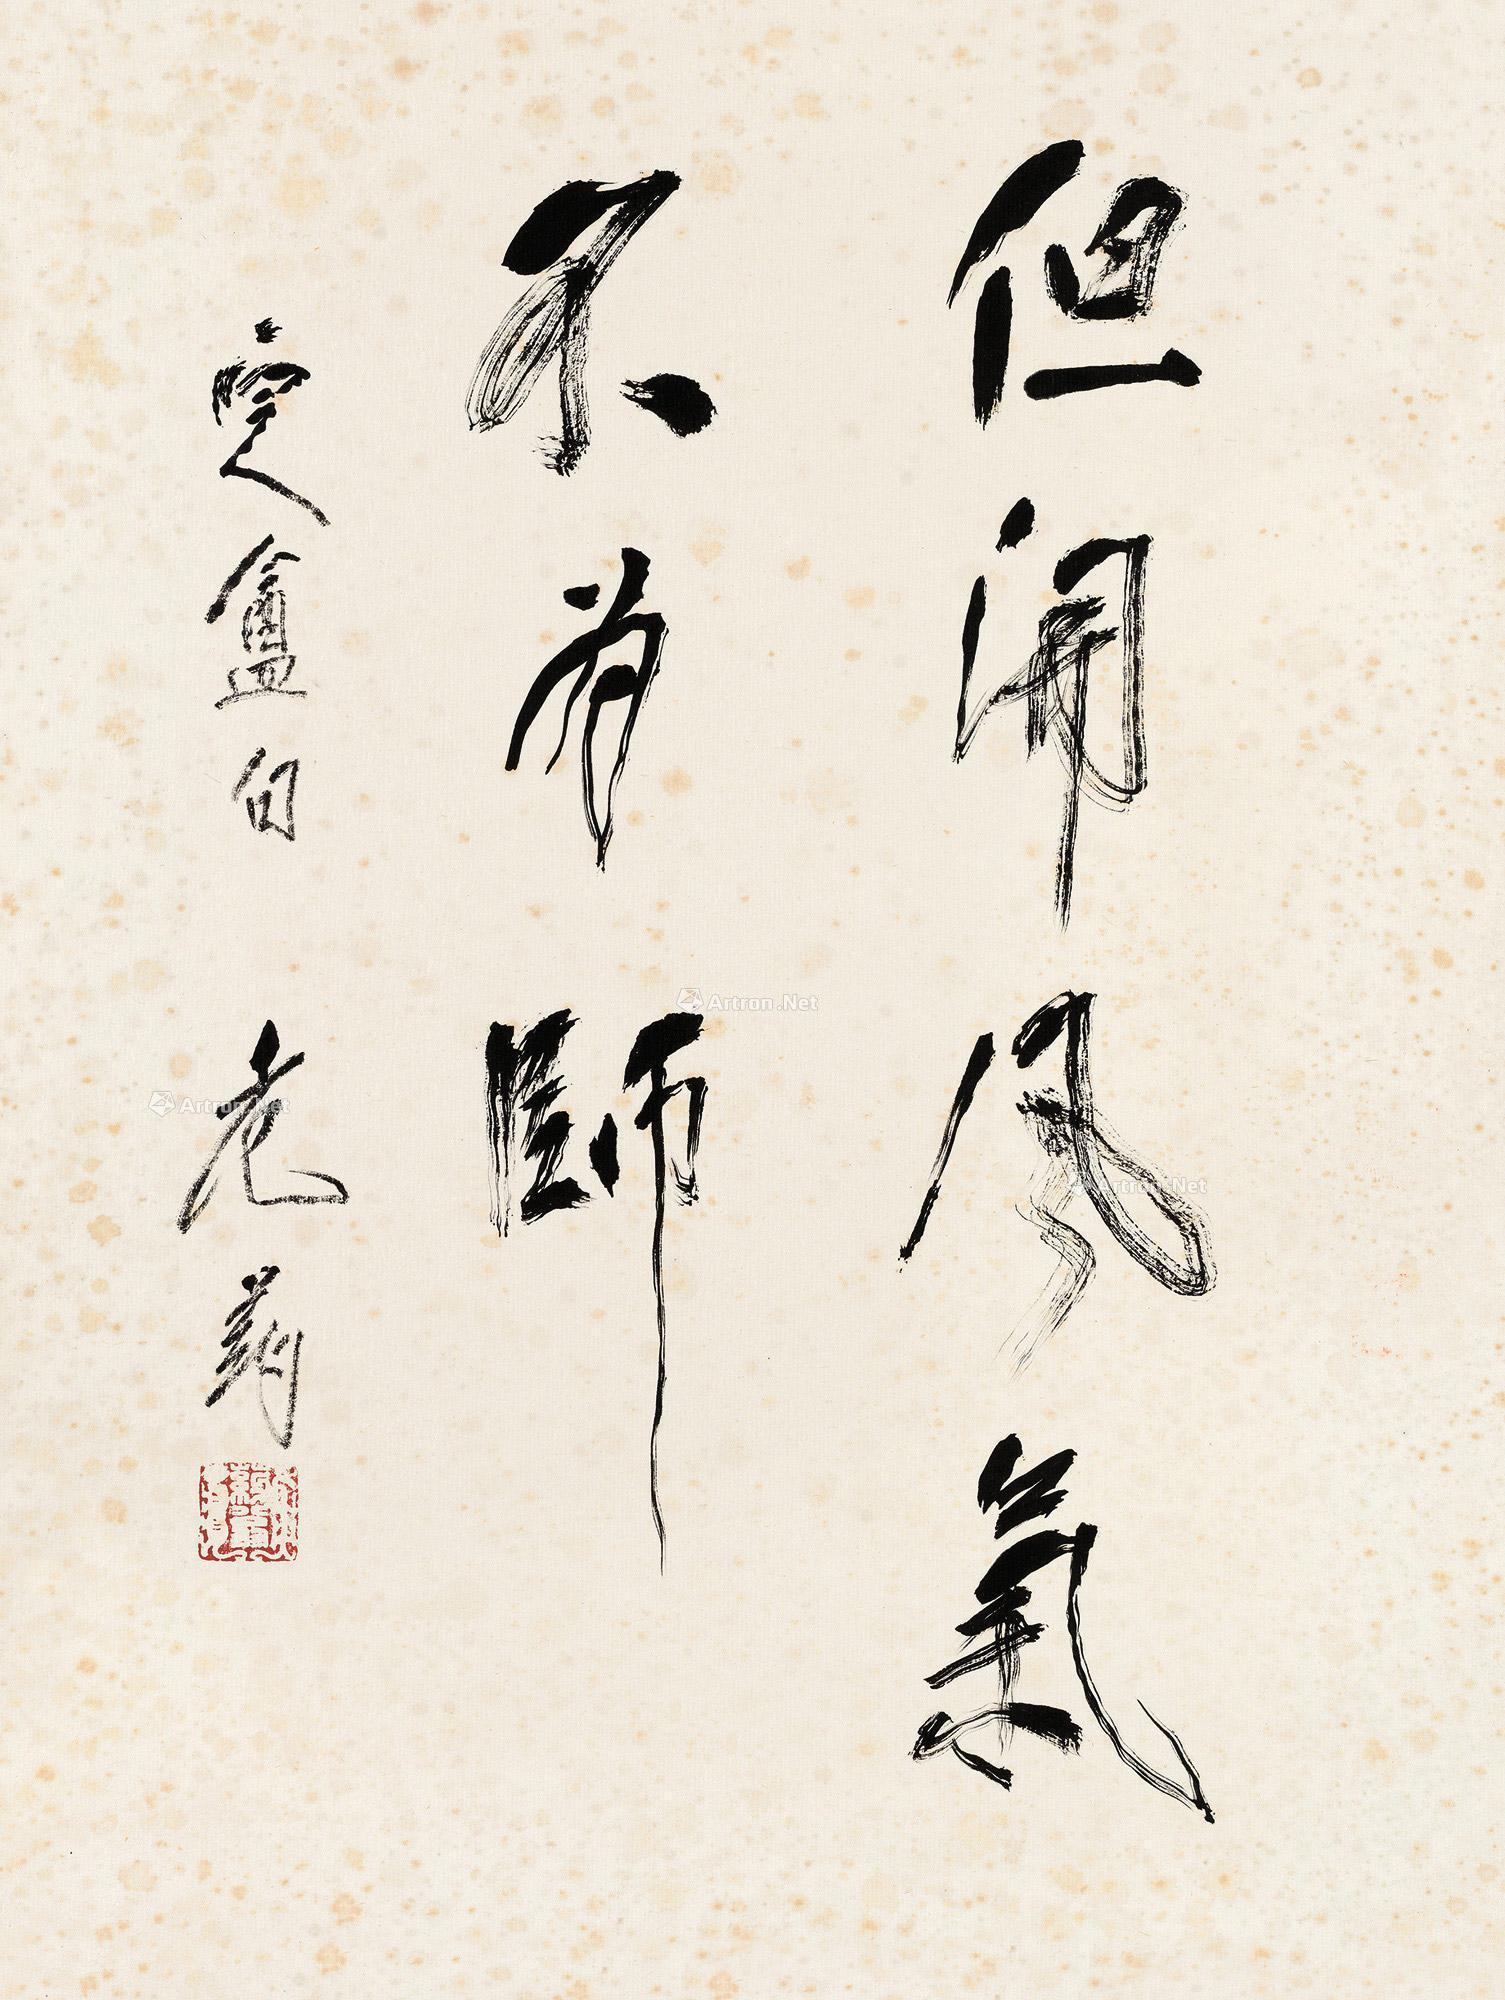 但開風氣
不為師
定盦句 老
Artron.Net
Artron.Net
Artron.Net